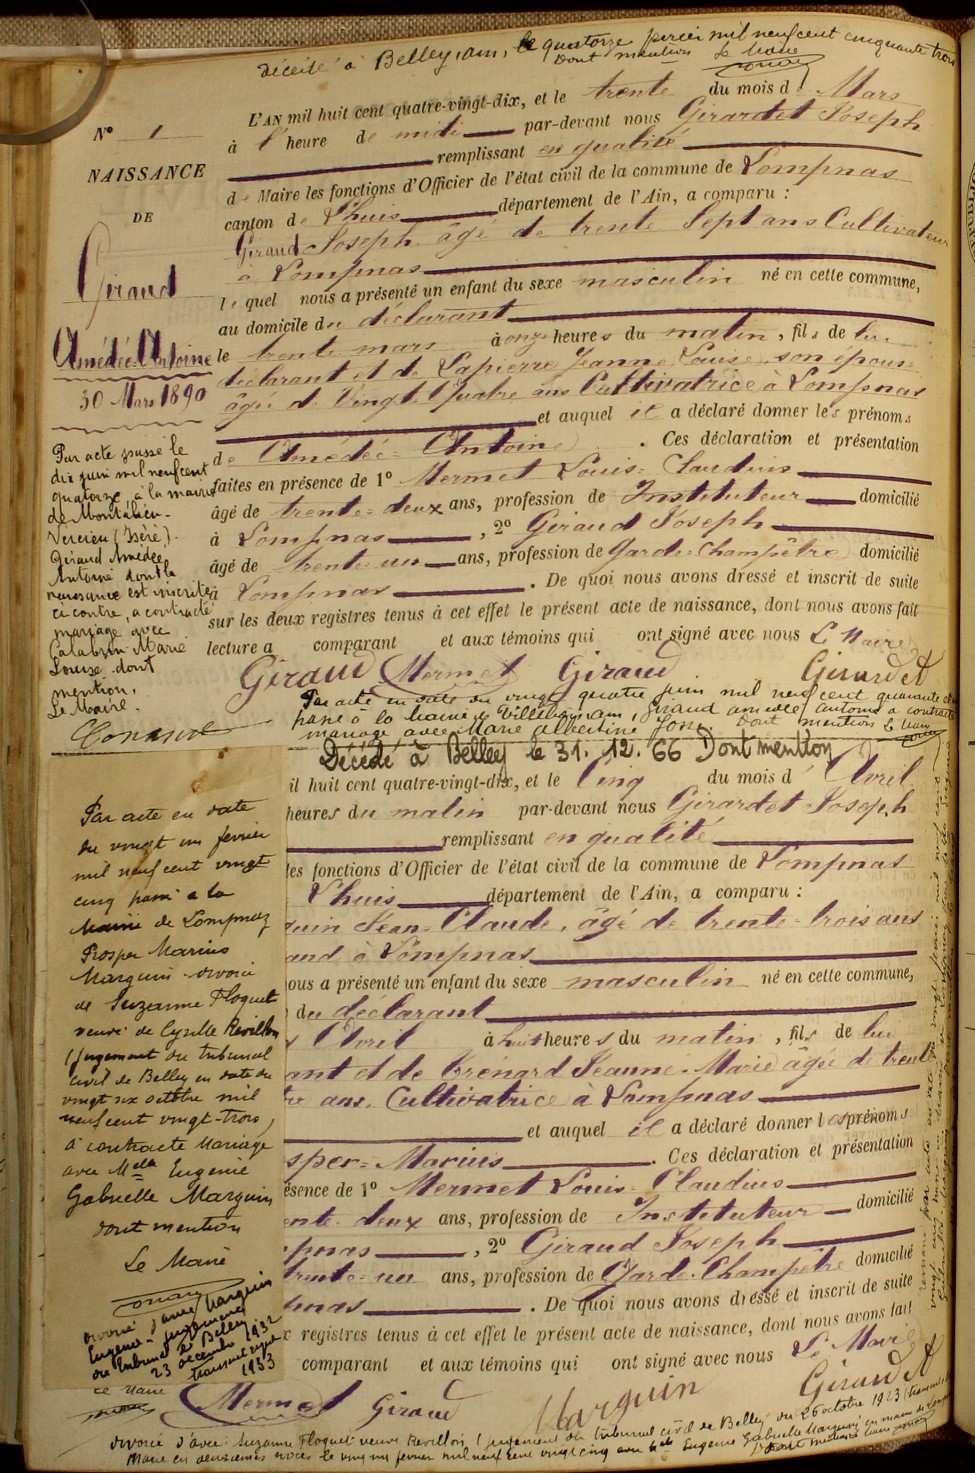 décédé à Belley, ain, le quatorze janvier mil neuf cent cinquante trois
Dont mention Le Maire
N° 1
NAISSANCE
DE
Giraud
Amédée-Antoine
30 Mars 1890
L'AN mil huit cent quatre-vingt-dix, et le trente du mois d Mars
à l'heure de midi par-devant nous Girardet Joseph
remplissant en qualité
de Maire les fonctions d'Officier de l'état civil de la commune de Lompnas
canton de Lhuis département de l'Ain, a comparu :
Giraud Joseph âgé de trente Sept ans Cultivateur
à Lompnas
lequel nous a présenté un enfant du sexe masculin né en cette commune,
au domicile du déclarant
le trente mars à onze heures du matin, fils de lui
déclarant et de Lapierre Jeanne Louise son épouse
âgée de Vingt Quatre ans Cultivatrice à Lompnas
et auquel il a déclaré donner les prénoms
de Amédée-Antoine. Ces déclaration et présentation
faites en présence de 1° Mermet Louis-Claudius
âgé de trente-deux ans, profession de Instituteur domicilié
à Lompnas, 2° Giraud Joseph
âgé de trente-un ans, profession de Garde-Champêtre domicilié
à Lompnas. De quoi nous avons dressé et inscrit de suite
sur les deux registres tenus à cet effet le présent acte de naissance, dont nous avons fait
lecture a comparant et aux témoins qui ont signé avec nous Le Maire
Giraud Mermet Giraud Girardet
Par acte passé le
dix juin mil neuf cent
quatorze, à la mairie
de Montalieu-
Vercieu (Isère)
Giraud Amédée
Antoine dont la
naissance est inscrite
ci contre, a contracté
mariage avec
Marie
Louise dont
mention.
Le Maire.
Par acte en date du vingt quatre juin mil neuf cent quarante
passé à la Mairie de Villebois, ain, Giraud amédée antoine a contracté
mariage avec Marie Albertine Dont mention Le Maire
Décédé à Belley le 31. 12. 66 Dont mention
il huit cent quatre-vingt-dix, et le Cinq du mois d' Avril
heures du matin par-devant nous Girardet Joseph
remplissant en qualité
les fonctions d'Officier de l'état civil de la commune de Lompnas
Lhuis département de l'Ain, a comparu :
guin Jean-Claude, âgé de trente-trois ans
à Lompnas
ous a présenté un enfant du sexe masculin né en cette commune,
du déclarant
Avril à huit heures du matin, fils de lui
ant et de Jeanne-Marie âgée de trente
ans, Cultivatrice à Lompnas
et auquel il a déclaré donner les prénoms
sper-Marius. Ces déclaration et présentation
ésence de 1° Mermet Louis-Claudius
ente-deux ans, profession de Instituteur domicilié
pnas, 2° Giraud Joseph
trente-un ans, profession de Garde-Champêtre domicilié
pnas. De quoi nous avons dressé et inscrit de suite
x registres tenus à cet effet le présent acte de naissance, dont nous avons fait
comparant et aux témoins qui ont signé avec nous Le Maire
Mermet Giraud Marguin Girardet
Par acte en date
du vingt un fevrier
mil neuf cent vingt
cinq passé a la
Mairie de Lompnaz
Prosper Marius
Marguin divorcé
de Suzanne Floquet
veuve de Cyrille Revillon
(jugement du tribunal
civil de Belley en date du
vingt six octobre mil
neuf cent vingt-trois)
a contracté Mariage
avec Melle Eugenie
Gabrielle Marguin
dont mention
Le Maire
divorcé d'avec Marguin
Eugenie jugement
du tribunal de Belley
23 décembre 1932
1933
Le Maire
divorcé d'avec Suzanne Floquet veuve Revillon (jugement du tribunal civil de Belley du 26 octobre 1923
Marié en deuxièmes noces le vingt un fevrier mil neuf cent vingt cinq avec Melle Eugenie Gabrielle Marguin